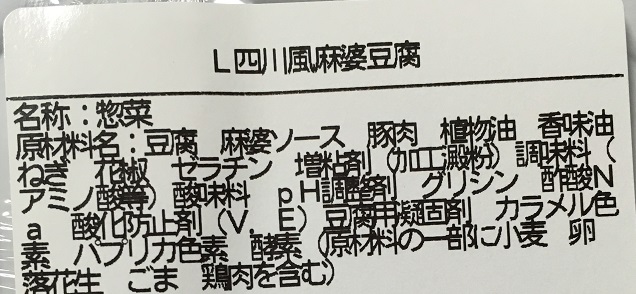 L四川風麻婆豆腐
名称:惣菜
原材料名:豆腐 麻婆ソース 豚肉 植物油 香味油
ねぎ 花椒 ゼラチン 増粘剤(加工澱粉)調味料(
アミノ酸等)酸味料 pH調整剤 グリシン 酢酸N
a 酸化防止剤(V.E)豆腐用凝固剤 カラメル色
素 パプリカ色素 酵素(原材料の一部に小麦 卵
落花生 ごま 鶏肉を含む)